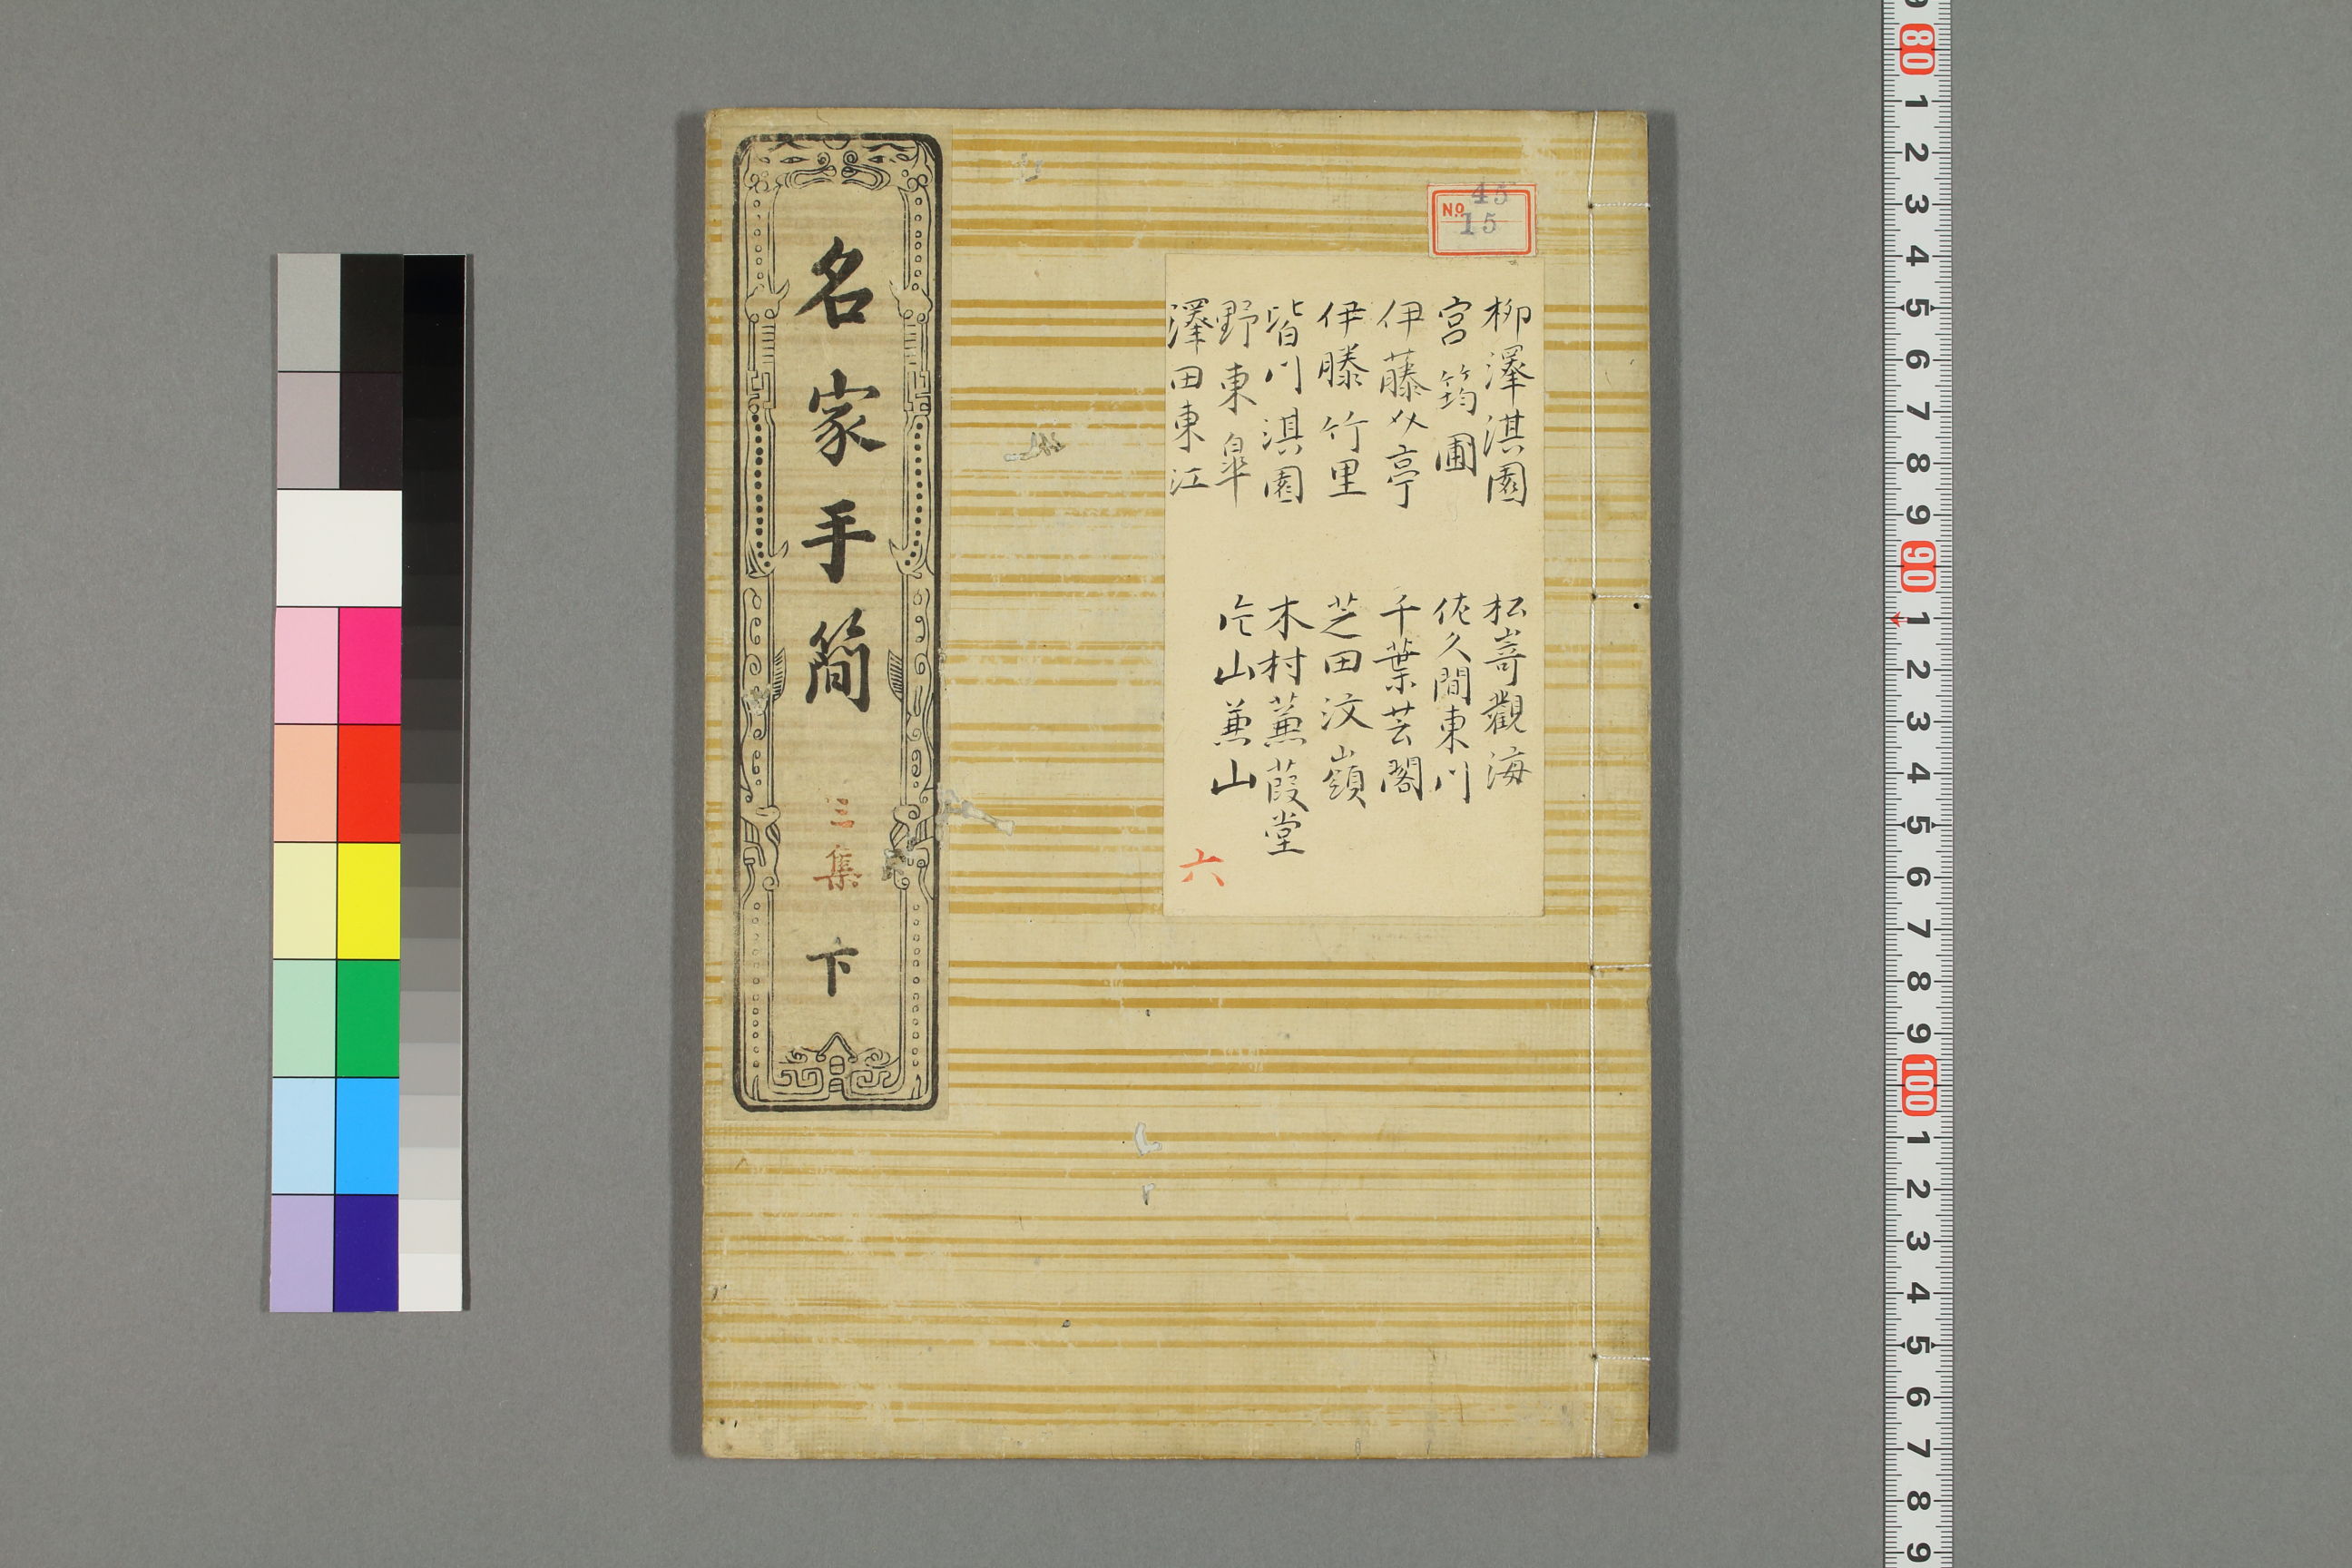 No 45
15
柳澤淇園
宮筠圃
伊藤介亭
伊滕竹里
皆川淇園
野東皐
澤田東江
松嵜觀海
佐久間東川
千葉芸閣
芝田汶嶺
木村蒹葭堂
片山兼山
六
名家手簡 三集 下
80 1 2 3 4 5 6 7 8 9 90 1 2 3 4 5 6 7 8 9 100 1 2 3 4 5 6 7 8 9